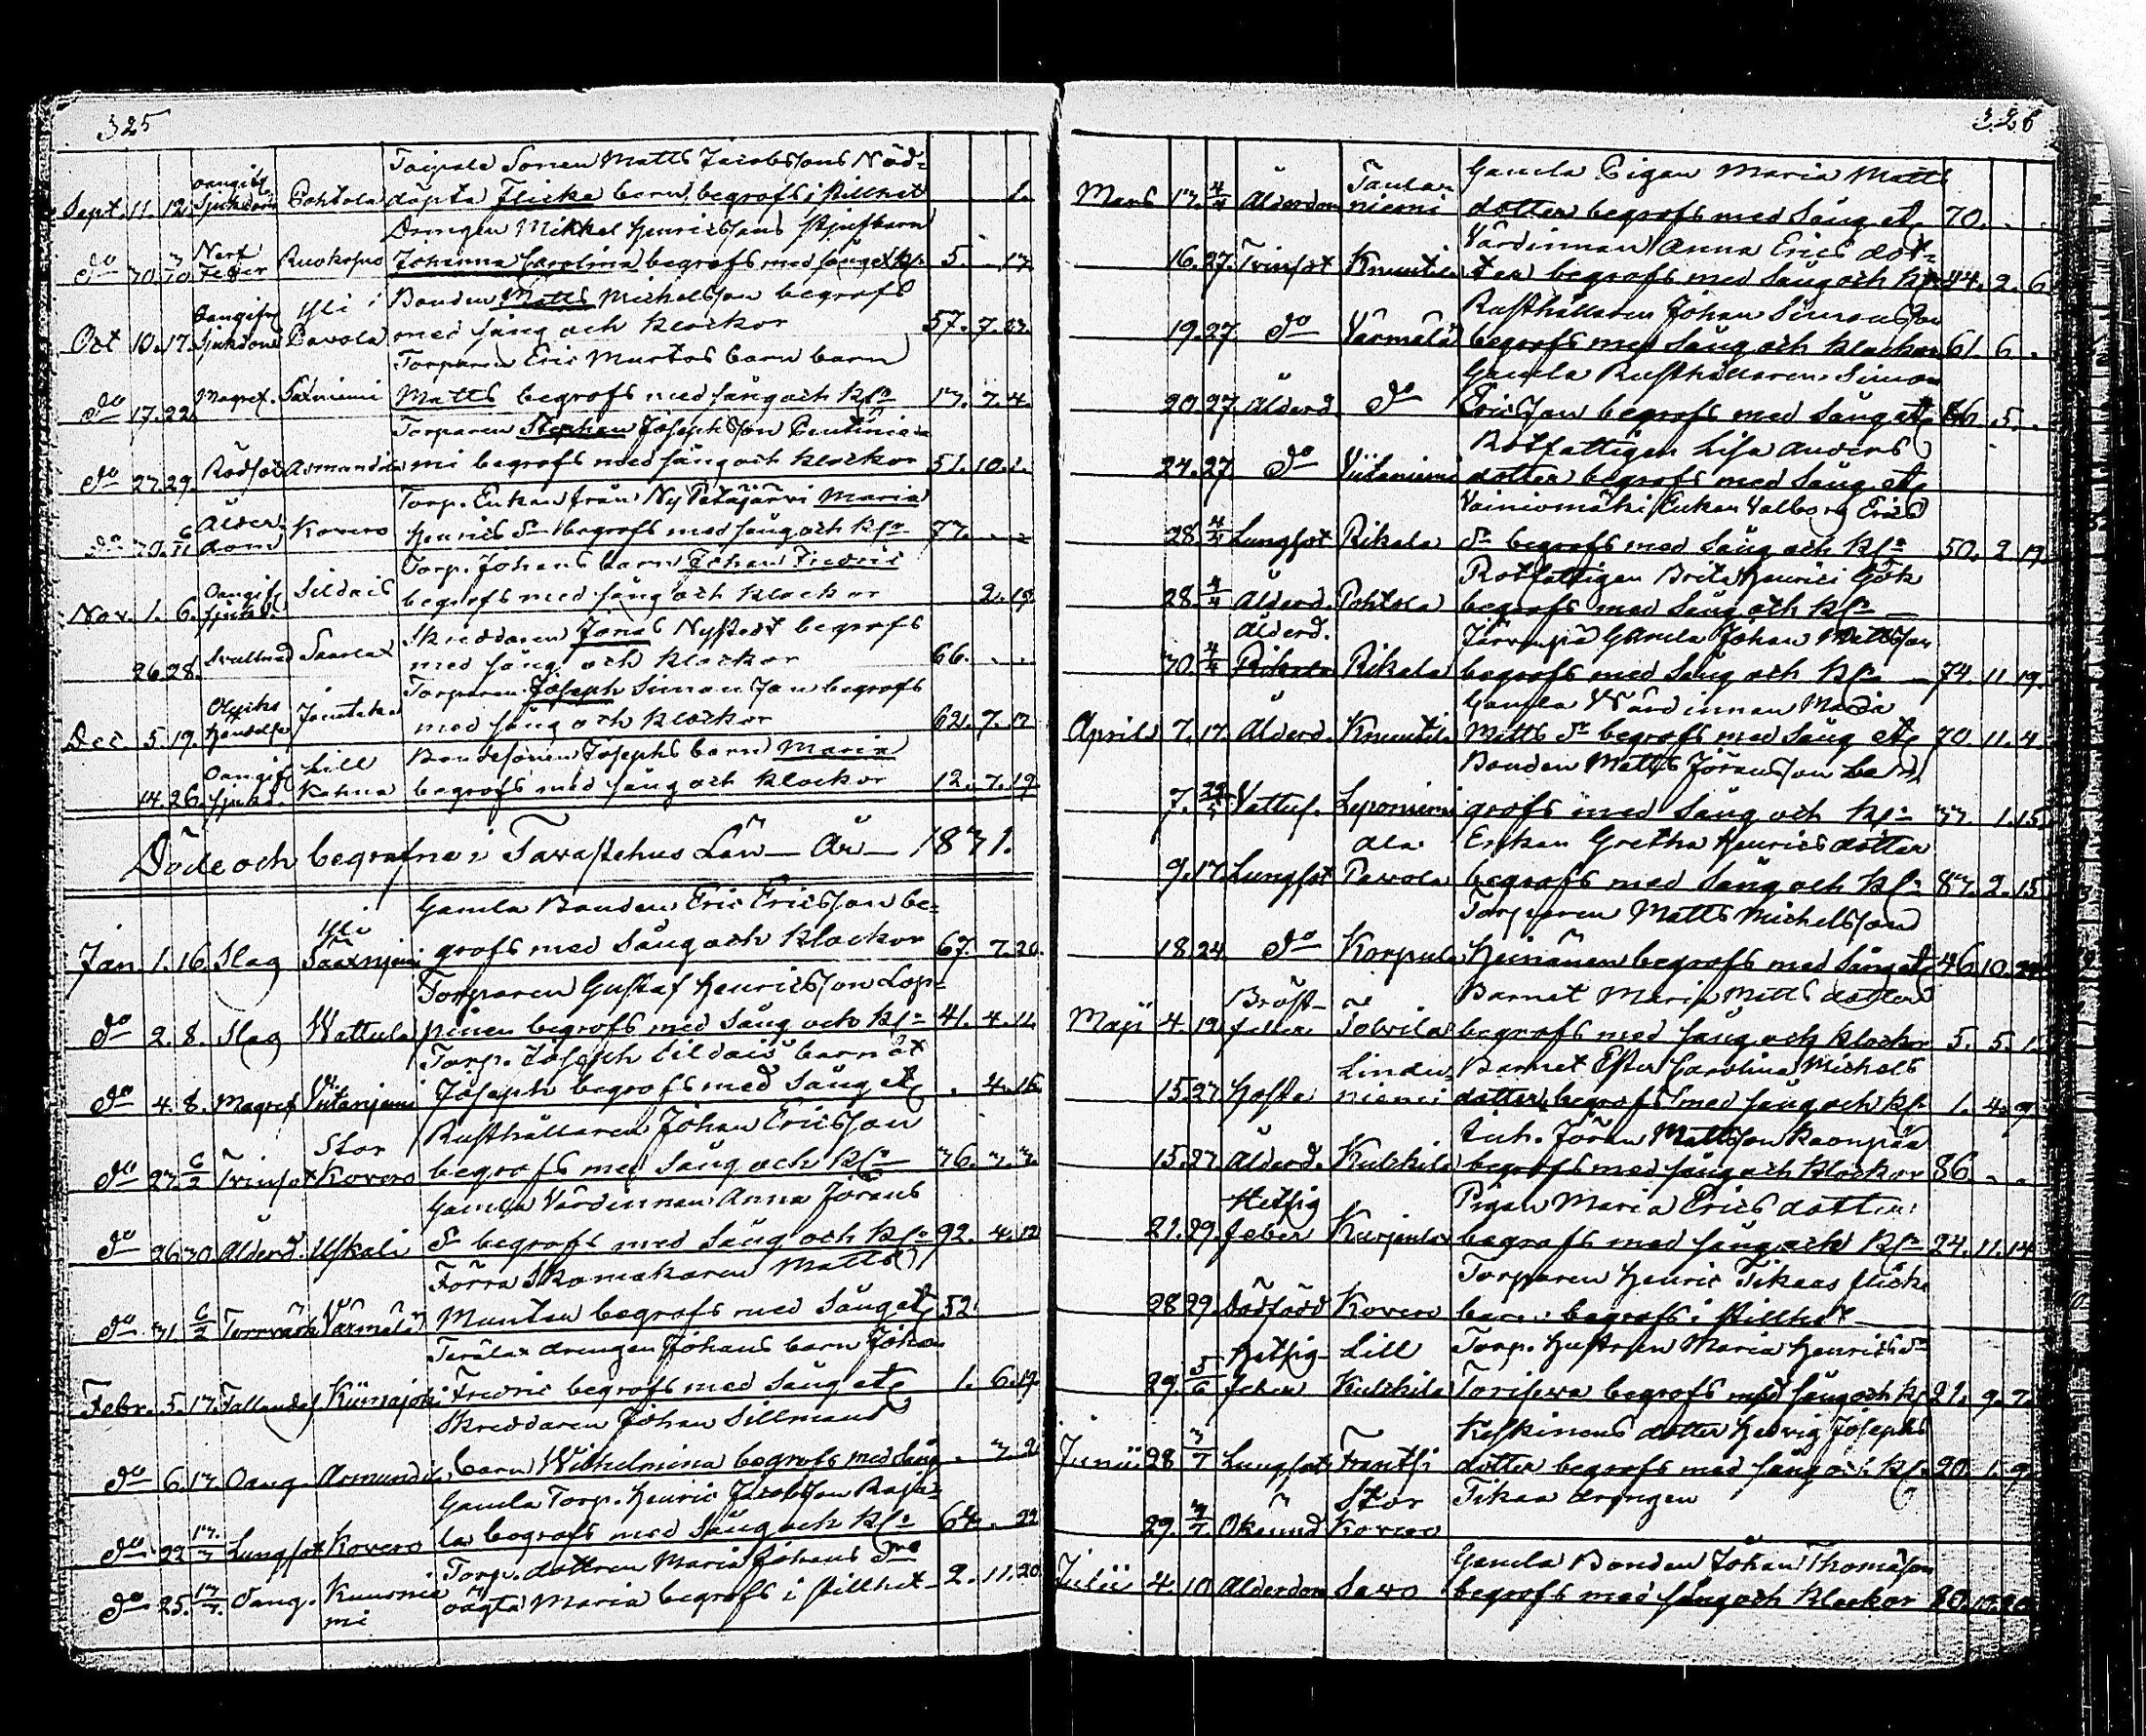 325
Taipale Sonen Matts Jacobssons Nöd-
Sept. 11. 12. oangifn Sjukdom Pohtola döpta Flicke barn begrofs i stillhet 1.
Drengen Mikkel Henricssons stjufbarn
do 30. Nerf Feber Ruokojus Johanna Carolina begrofs med sång och kl:r 5. 13
Bonden Matts Michelsson begrofs
Oct 10. 17. Oangifn Sjukdom Yli Pavola med sång och klockor 57. 7. 23.
Torparen Eric Murtos barn barn
do 17. 22. Magref. Saxniemi Matts begrofs med sång och kl:r 13. 7. 4.
Torparen Stephan Josephsson Penttinie-
do 27. 29. Rödsot Asmundila mi begrofs med sång och klockor 51. 10. 1.
Torp. Enkan från Ny Petäjärvi Maria
do 30. 6/11 Ålderdom Kovero Henrics dr begrofs med sång och kl:r 77. . .
Torp. Johans barn Johan Fredric
Nov. 1. 6. Oangifn sjukd. Sildais begrofs med sång och klockor 2. 19.
Skreddaren Jonas Nystedt begrofs
26. 28. Svullnad Saarela med sång och klockor 66. . .
Torparen Joseph Simonsson begrofs
Dec 5. 19. Olycks händelse med sång och klockor 62. 7. 17
Bondesonen Josephs barn Maria
14. 26. Oangifn sjukd. Lill Kahna begrofs med sång och klockor 12. 7. 19.
Döde och begrafne i Tavastehus Län — År — 1831.
Gamla Bonden Eric Ericsson be-
Jan. 1. 16. Slag Yli Sääxniemi grofs med Sång och klockor 67. 7. 20.
Torparen Gustaf Henricsson Lop-
do 2. 8. Slag Wattula pinen begrofs med Sång och kl:r 41. 4. 11.
Torp. Joseph Sildais barn
do 4. 8. Magref Viitaniemi Joseph begrofs med Sång etc . 4. 16.
Rusthållaren Johan Ericsson
do 23. 6/2 Tvinsot Stor Kovero begrofs med Sång och kl:r 36. 3. 3.
Gamla Värdinnan Anna Jörans
do 26. 30. Ålderd. Uskali dr begrofs med Sång och kl:r 92. 4. 12
Förra Skomakaren Matts
do 31. 6/2 Torrvärk Värmälä Munter begrofs med Sång etc 52.
Terälax drengen Johans barn Johan
Febr. 5. 17. Fallandes. Kiimajoki Fredric begrofs med Sång etc 1. 6. 19.
Skreddaren Johan Sillmans
do 6. 13. Oang. Asmundila barn Wilhelmina begrofs med Sång . 3. 2
Gamla Torp. Henric Jacobsson Raja-
do 22 13/3 Lungsot Kovero la begrofs med Sång och kl:r 64. . 22
Torp. dottren Maria Johans drs
do 25. 13/3. Oang. Kuurniemi oägta Maria begrofs i stillhet 2. 11. 20
326
Gamla Pigan Maria Matts
Mars 13. 4/4 Ålderdom Taulaniemi dotter begrofs med Sång etc 70. . .
Värdinnan Anna Erics dot-
16. 27. Tvinsot Knuutila ter begrofs med Sång och kl:r 44. 2. 6.
Rusthållaren Johan Simonsson
19. 27. do Värmälä begrofs med Sång och klockor 61. 6 .
Gamla Rusthållaren Simon
20. 27. Ålderd do Ericsson begrofs med Sång etc 86. 5. .
Rotfattigen Lisa Anders
24. 27 do Viitaniemi dotter begrofs med Sång etc
Vainiomäki Enkan Valborg Erics
28. 4/4 Lungsot Rikala dr begrofs med Sång och kl:r 50. 2 19
Rotfattigen Brita Henrici Gök
28. 4/4 Ålderd. Pohtola begrofs med Sång och kl:r —
Järvenpää Gamla Johan Mattsson
30. 4/4 Ålderd. Rikala begrofs med Sång och kl:r 74. 11 19.
Gamla Wärdinnan Maria
April 7. 17. Ålderd. Knuutila Matts dr begrofs med Sång etc 70. 11. 4.
Bonden Matts Jöransson be-
7. Vattus. Leponiemi grofs med Sång och kl:r 33. 1. 15.
Enkan Gretha Henrics dotter
9. 17. Lungsot Ala Pavola begrofs med Sång och kl:r 83. 2. 15
Torparen Matts Michelsson
18. 24. do Korpula Heinänen begrofs med Sång etc 46. 10.
Barnet Maria Matts dotter
Maji 4. 12. Bröst-feber Tolvila begrofs med sång och klockor 5. 5. 1.
Barnet Ester Carolina Michels
15. 27 Hosta Linduniemi dotter begrofs med sång och kl:r 1. 4. 9.
Inh. Jöran Mattsson
15. 27 Ålderd. Kulckila begrofs med sång och klockor 86. . .
Pigan Maria Erics dotter
21. 29. Hetsig feber Kurjenla begrofs med sång och kl:r 24. 11. 14
Torparen Henric Tikaas flicke
28 29. Dödfödd Kovero barn begrofs i stillhet —
Torp. Hustrun Maria Henrics dr
29. 5/6 Hetsig feber Lill Kulckila begrofs med sång och kl:r 21. 9. 7.
Keskinens dotter Hedvig Josephs
Junii 28 3/7 Lungsot Frantsi dotter begrofs med sång och kl:r 20. 1. 9.
29. 3/7 Okänd Stor Kovero Tikaa drengen
Gamla Bonden Johan Thomasson
Julii 4. 10 Ålderdom Savo begrofs med sång och klockor 80.